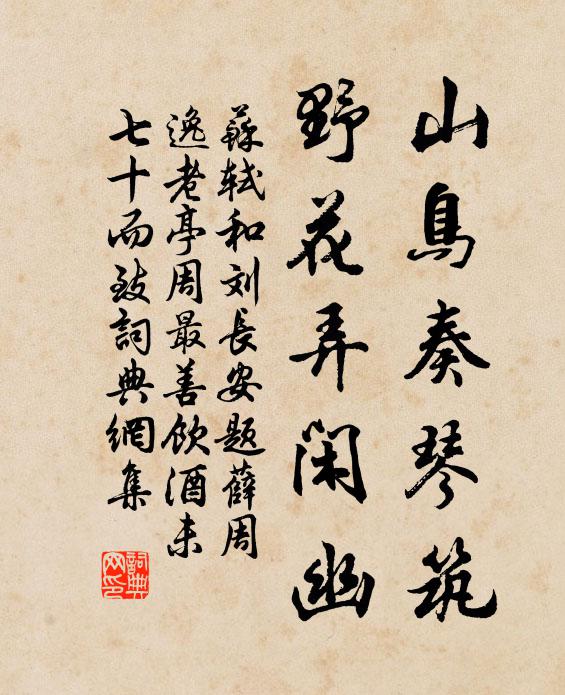 山鳥奏琴筑
野花弄閑幽
蘇軾和刘長安題薛周
逸老亭周最善飲酒未
七十而致詞典網集
詞典网印